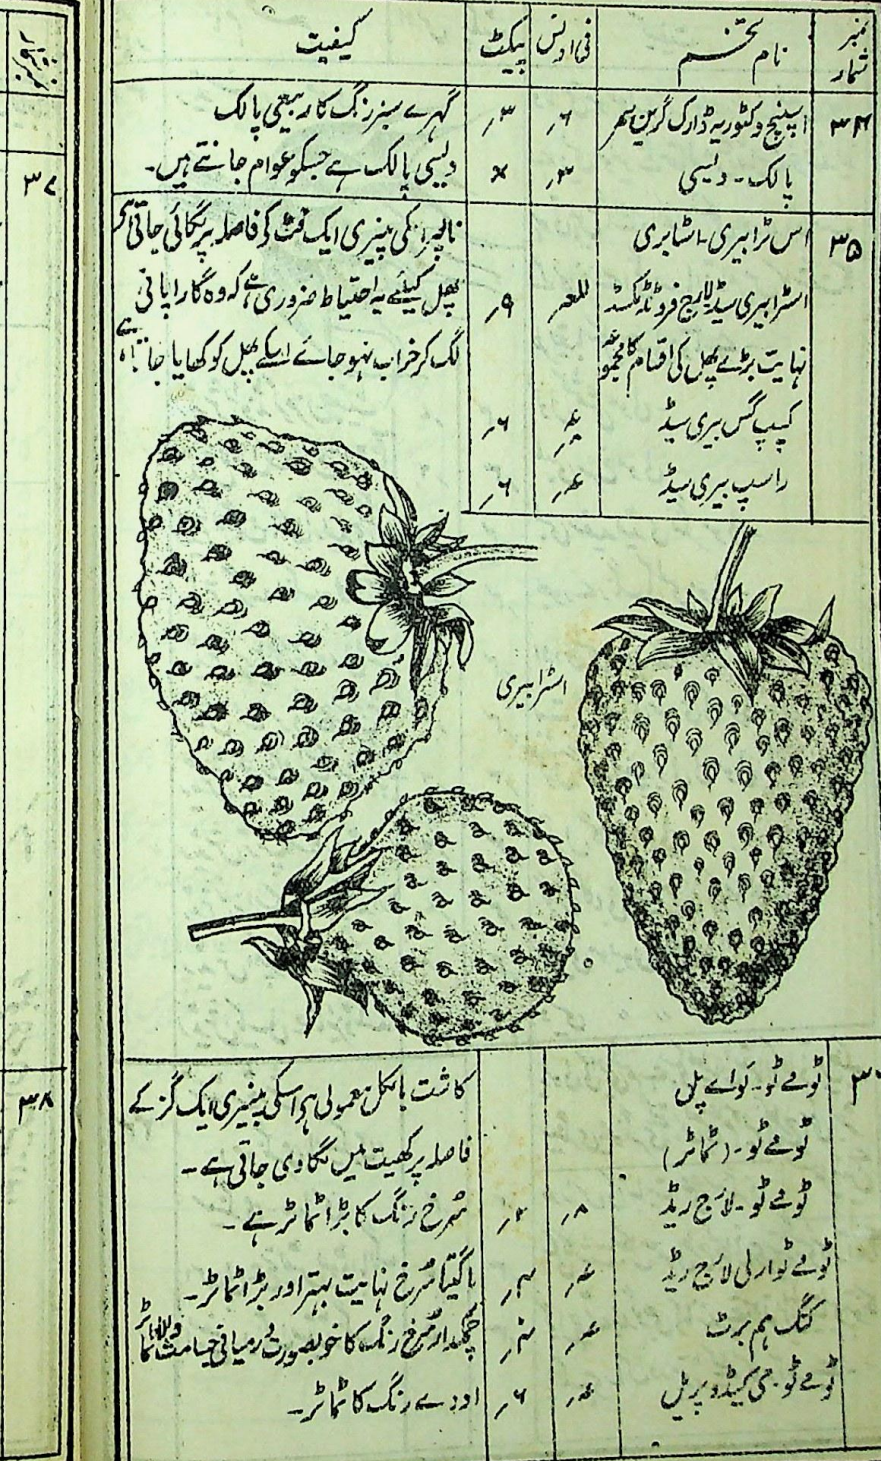 نمبر شمار نام تخم فی اونس پیکٹ کیفیت
۳۴ اسپنچ وکٹوریہ ڈارک گرین ۶ر ۳ر گہرے سبز رنگ کا ربیعی پالک
پالک - دیسی ۳ر × دیسی پالک ہے جسکو عوام جانتے ہیں -
۳۵ اس ٹرابیری - اسٹابری کی پنیری ایک فٹ کے فاصلہ پر لگائی جاتی ہے
اسٹرابیری سیڈ لارج فروٹڈ مکسڈ ۹ر پھل کیلئے یہ احتیاط ضروری ہے کہ وہ گارا پانی
نہایت بڑے پھل کی اقسام کا مجموعہ لگ کر خراب نہو جائے اسکے پھل کو کھایا جاتا ہے
کیپ گس بیری سیڈ ۶ر
راسپ بیری سیڈ ۶ر
اسٹرابیری
ٹومے ٹو - لَو اے پل کاشت بالکل معمولی ہے اسکی پنیری ایک گز کے
ٹومے ٹو - (ٹماٹر) فاصلہ پر کھیت میں لگا دی جاتی ہے -
ٹومے ٹو - لارج ریڈ ۸ر سُرخ رنگ کا بڑا ٹماٹر ہے -
ٹومے ٹو ارلی لارج ریڈ سُرخ نہایت بہتر اور بڑا ٹماٹر -
کنگ ہم برٹ چمکدار سُرخ رنگ کا خوبصورت درمیانی جسامت والا ٹماٹر
ٹومے ٹو پرپل ۶ر اودے رنگ کا ٹماٹر -
۳۷
۳۸